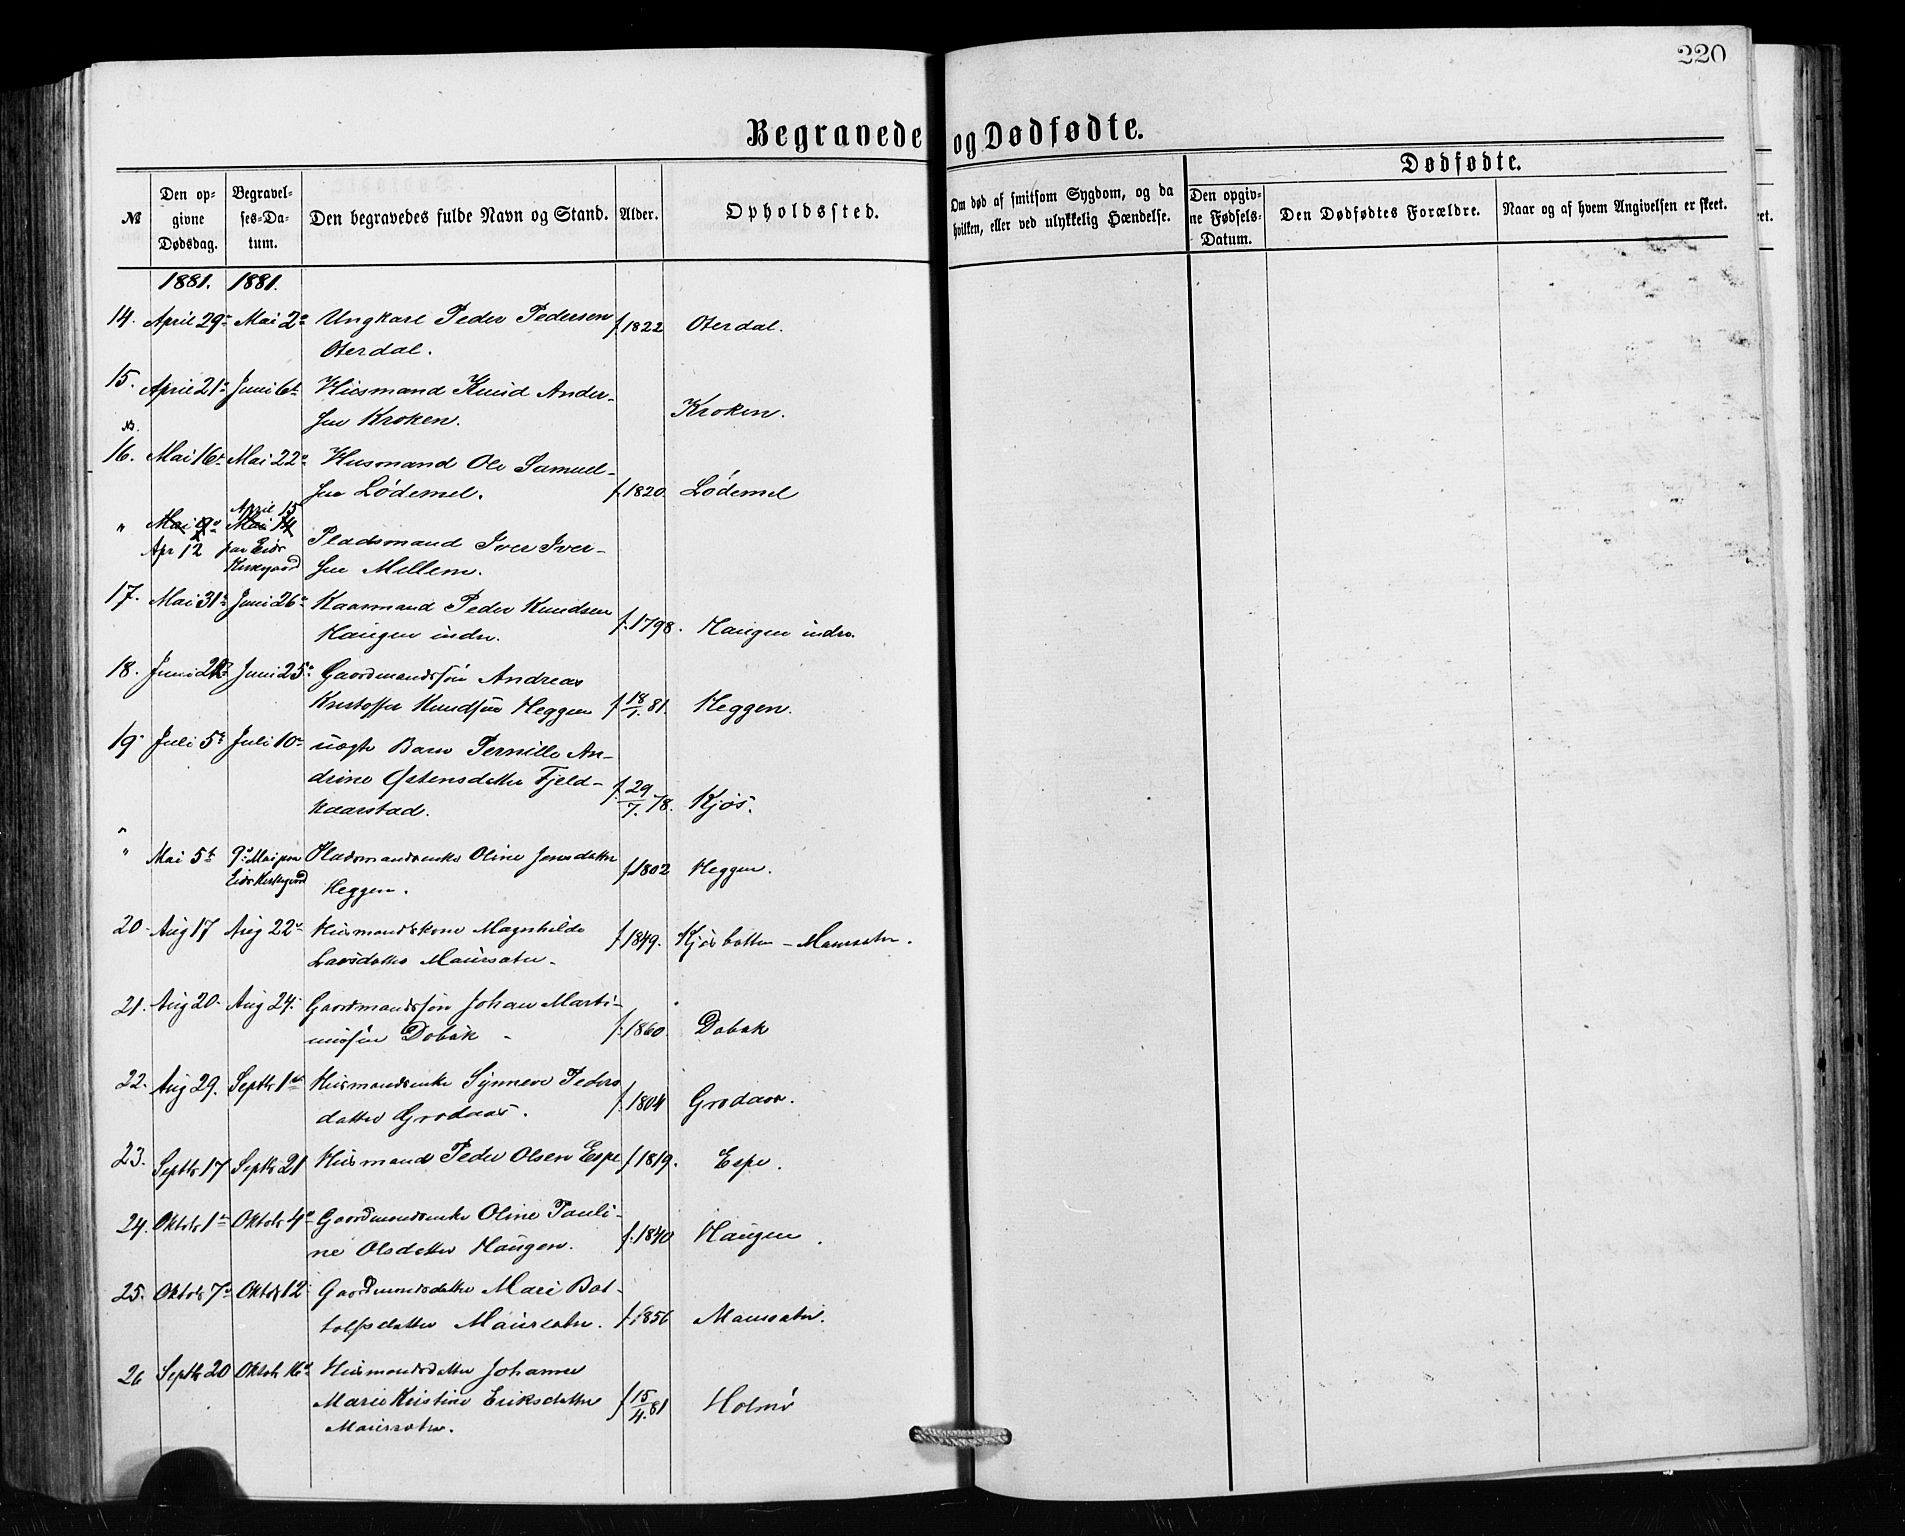 220
Begravede og Dødfødte.
№
Den op-
givne
Dødsdag.
Begravel-
ses-Da-
tum.
Den begravedes fulde Navn og Stand.
Alder.
Opholdssted.
Om død af smitsom Sygdom, og da
hvilken, eller ved ulykkelig Hændelse.
Dødfødte.
Den opgiv-
ne Fødsels-
Datum.
Den Dødfødtes Forældre.
Naar og af hvem Angivelsen er skeet.
et.
1881. 1881.
14. April 29 Mai 2 Ungkarl Peder Pedersen f 1822 Oterdal.
Oterdal.
15. April 21 Juni 6t Husmand Knud Ander-
sen Kroken. Kroken.
16. Mai 16t Mai 22 Husmand Ole Samuel-
sen Lødemel. f. 1820. Lødemel
" Mai 9 Mai 14 April 15
Apr 12 paa Eids Kirkegaard Pladsmand Iver Iver-
sen Mellem.
17. Mai 31 Juni 26 Kaarmand Peder Knudsen
Haugen indre. f. 1798. Haugen indre.
18. Juni Juni 25 Gaardmandssøn Andreas
Kristoffer Knudsøn Heggen f 18/1. 81. Heggen.
19 Juli 5t Juli 10 uægte Barn Pernille An-
drine Østensdatter Fjeld-
kaarstad. f. 29/7. 78. Kjøs.
" Mai 5t 9 Mai paa Eids Kirkegaard Pladsmandsenke Oline Jensdatter
Heggen. f. 1802 Heggen.
20 Aug 17 Aug 22 Husmandskone Magnhilde
Larsdatter Maursæter. f 1849. Kjøsbotten - Maursæter.
21. Aug 20 Aug 24. Gaardmandssøn Johan Marti-
niusen Dobak f. 1860. Dobak
22. Aug 29. Septbr 1 Husmandsenke Synneve Peders
datter Grodaas. f. 1804 Grodaas.
23. Septbr 17 Septbr 21 Husmand Peder Olsen Espe f 1819. Espe.
24. Oktobr 1 Oktobr 4 Gaardmandsenke Oline Pauli-
ne Olsdatter Haugen. f. 1840 Haugen.
25. Oktobr 7 Oktobr 12 Gaardmandsdatter Mari Bot-
tolfsdatter Maursæter. f. 1856 Maursæter.
26 Septbr 20 Oktobr 16 Husmandsdatter Johanne
Marie Kristine Eriksdatter f 15/4. 81 Holmø
Maursæter.